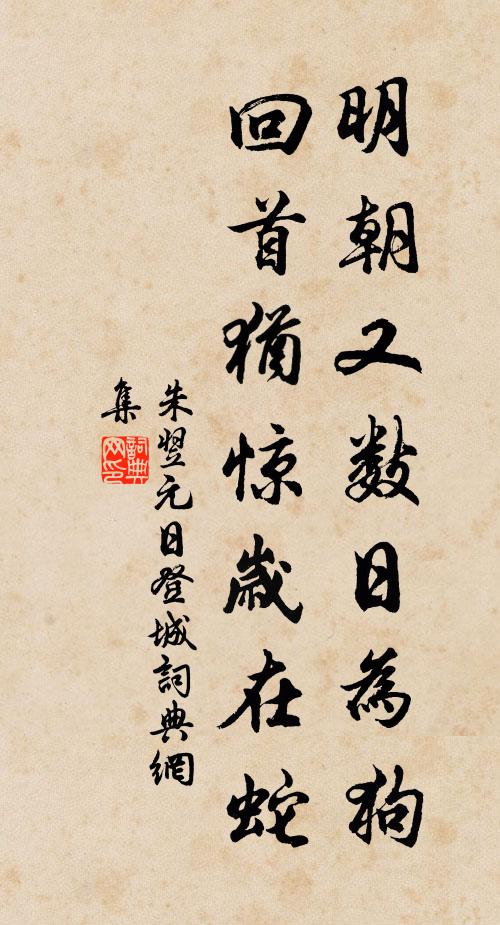 明朝又数日為狗
回首猶惊歲在蛇
朱翌元日登城詞典網
集
詞典
网印